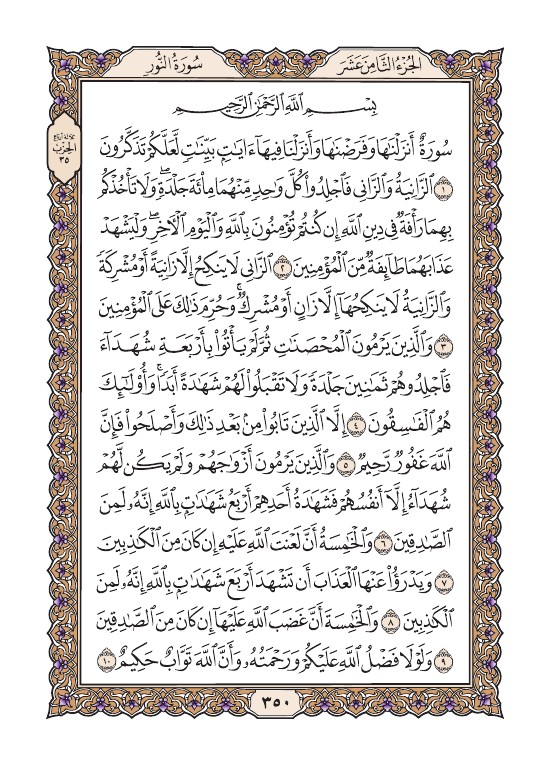 الجُزْءُ الثَّامِنَ عَشَرَ
سُورَةُ النُّورِ
الحِزْب
٣٥
بِسْمِ اللَّهِ الرَّحْمَٰنِ الرَّحِيمِ
سُورَةٌ أَنزَلْنَٰهَا وَفَرَضْنَٰهَا وَأَنزَلْنَا فِيهَآ ءَايَٰتٍۭ بَيِّنَٰتٍ لَّعَلَّكُمْ تَذَكَّرُونَ
١ ٱلزَّانِيَةُ وَٱلزَّانِى فَٱجْلِدُوا۟ كُلَّ وَٰحِدٍ مِّنْهُمَا مِا۟ئَةَ جَلْدَةٍ ۖ وَلَا تَأْخُذْكُم
بِهِمَا رَأْفَةٌ فِى دِينِ ٱللَّهِ إِن كُنتُمْ تُؤْمِنُونَ بِٱللَّهِ وَٱلْيَوْمِ ٱلْأَخِرِ ۖ وَلْيَشْهَدْ
عَذَابَهُمَا طَآئِفَةٌ مِّنَ ٱلْمُؤْمِنِينَ ٢ ٱلزَّانِى لَا يَنكِحُ إِلَّا زَانِيَةً أَوْ مُشْرِكَةً
وَٱلزَّانِيَةُ لَا يَنكِحُهَآ إِلَّا زَانٍ أَوْ مُشْرِكٌ ۚ وَحُرِّمَ ذَٰلِكَ عَلَى ٱلْمُؤْمِنِينَ
٣ وَٱلَّذِينَ يَرْمُونَ ٱلْمُحْصَنَٰتِ ثُمَّ لَمْ يَأْتُوا۟ بِأَرْبَعَةِ شُهَدَآءَ
فَٱجْلِدُوهُمْ ثَمَٰنِينَ جَلْدَةً وَلَا تَقْبَلُوا۟ لَهُمْ شَهَٰدَةً أَبَدًا ۚ وَأُو۟لَٰٓئِكَ
هُمُ ٱلْفَٰسِقُونَ ٤ إِلَّا ٱلَّذِينَ تَابُوا۟ مِنۢ بَعْدِ ذَٰلِكَ وَأَصْلَحُوا۟ فَإِنَّ
ٱللَّهَ غَفُورٌ رَّحِيمٌ ٥ وَٱلَّذِينَ يَرْمُونَ أَزْوَٰجَهُمْ وَلَمْ يَكُن لَّهُمْ
شُهَدَآءُ إِلَّآ أَنفُسُهُمْ فَشَهَٰدَةُ أَحَدِهِمْ أَرْبَعُ شَهَٰدَٰتٍۭ بِٱللَّهِ إِنَّهُۥ لَمِنَ
ٱلصَّٰدِقِينَ ٦ وَٱلْخَٰمِسَةُ أَنَّ لَعْنَتَ ٱللَّهِ عَلَيْهِ إِن كَانَ مِنَ ٱلْكَٰذِبِينَ
٧ وَيَدْرَؤُا۟ عَنْهَا ٱلْعَذَابَ أَن تَشْهَدَ أَرْبَعَ شَهَٰدَٰتٍۭ بِٱللَّهِ إِنَّهُۥ لَمِنَ
ٱلْكَٰذِبِينَ ٨ وَٱلْخَٰمِسَةَ أَنَّ غَضَبَ ٱللَّهِ عَلَيْهَآ إِن كَانَ مِنَ ٱلصَّٰدِقِينَ
٩ وَلَوْلَا فَضْلُ ٱللَّهِ عَلَيْكُمْ وَرَحْمَتُهُۥ وَأَنَّ ٱللَّهَ تَوَّابٌ حَكِيمٌ ١٠
٣٥٠